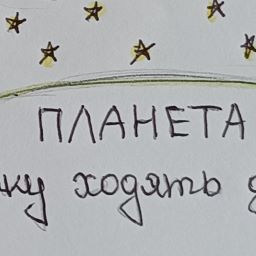 ПЛАНЕТА
ходять